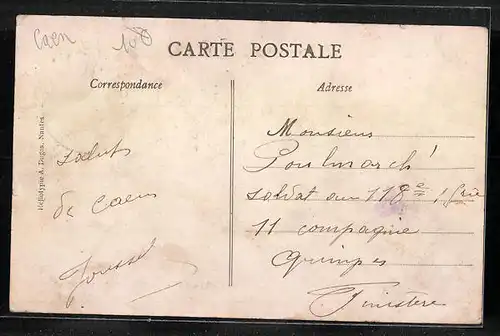 Caen
100
CARTE POSTALE
Correspondance
Adresse
Héliotypie A. Dugas, Nantes.
saluts
de Caen
Joussel
Monsieur
Poulmarch'
soldat au 118e
11 compagnie
Quimper
Finistère